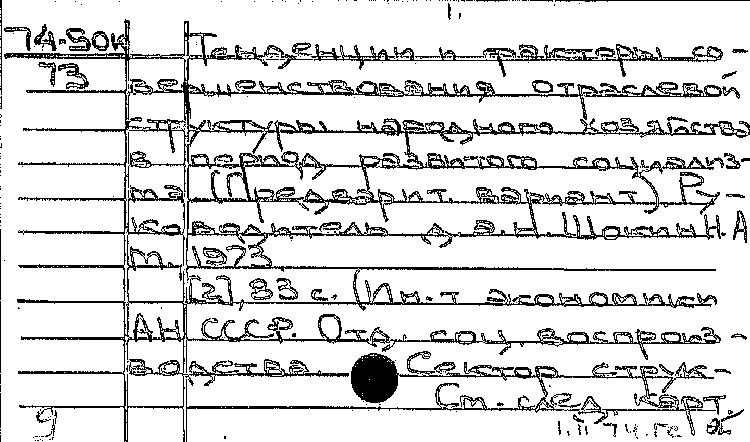 1.
74-50к Тенденции и факторы со-
73 вершенствования отраслевой
структуры народного хозяйства
в период развитого социализ-
ма (Предварит. вариант). Ру-
ководитель д. э. н. Шокин Н.А
м. 1973
[2], 83 с. (Ин-т экономики
АН СССР. Отд. соц. воспроиз-
водства. Сектор струк-
См. след. карт.
9 1.II 74.